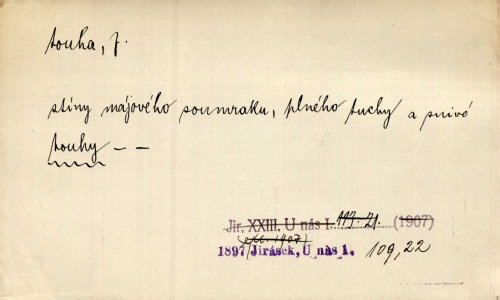 touha, f.
stíny májového soumraku, plného tuchy a snivé
touhy – –
Jir. XXIII, U nás I. 113. 21. (1907)
(vyd. 1907)
1897 Jirásek, U nás 1. 109,22